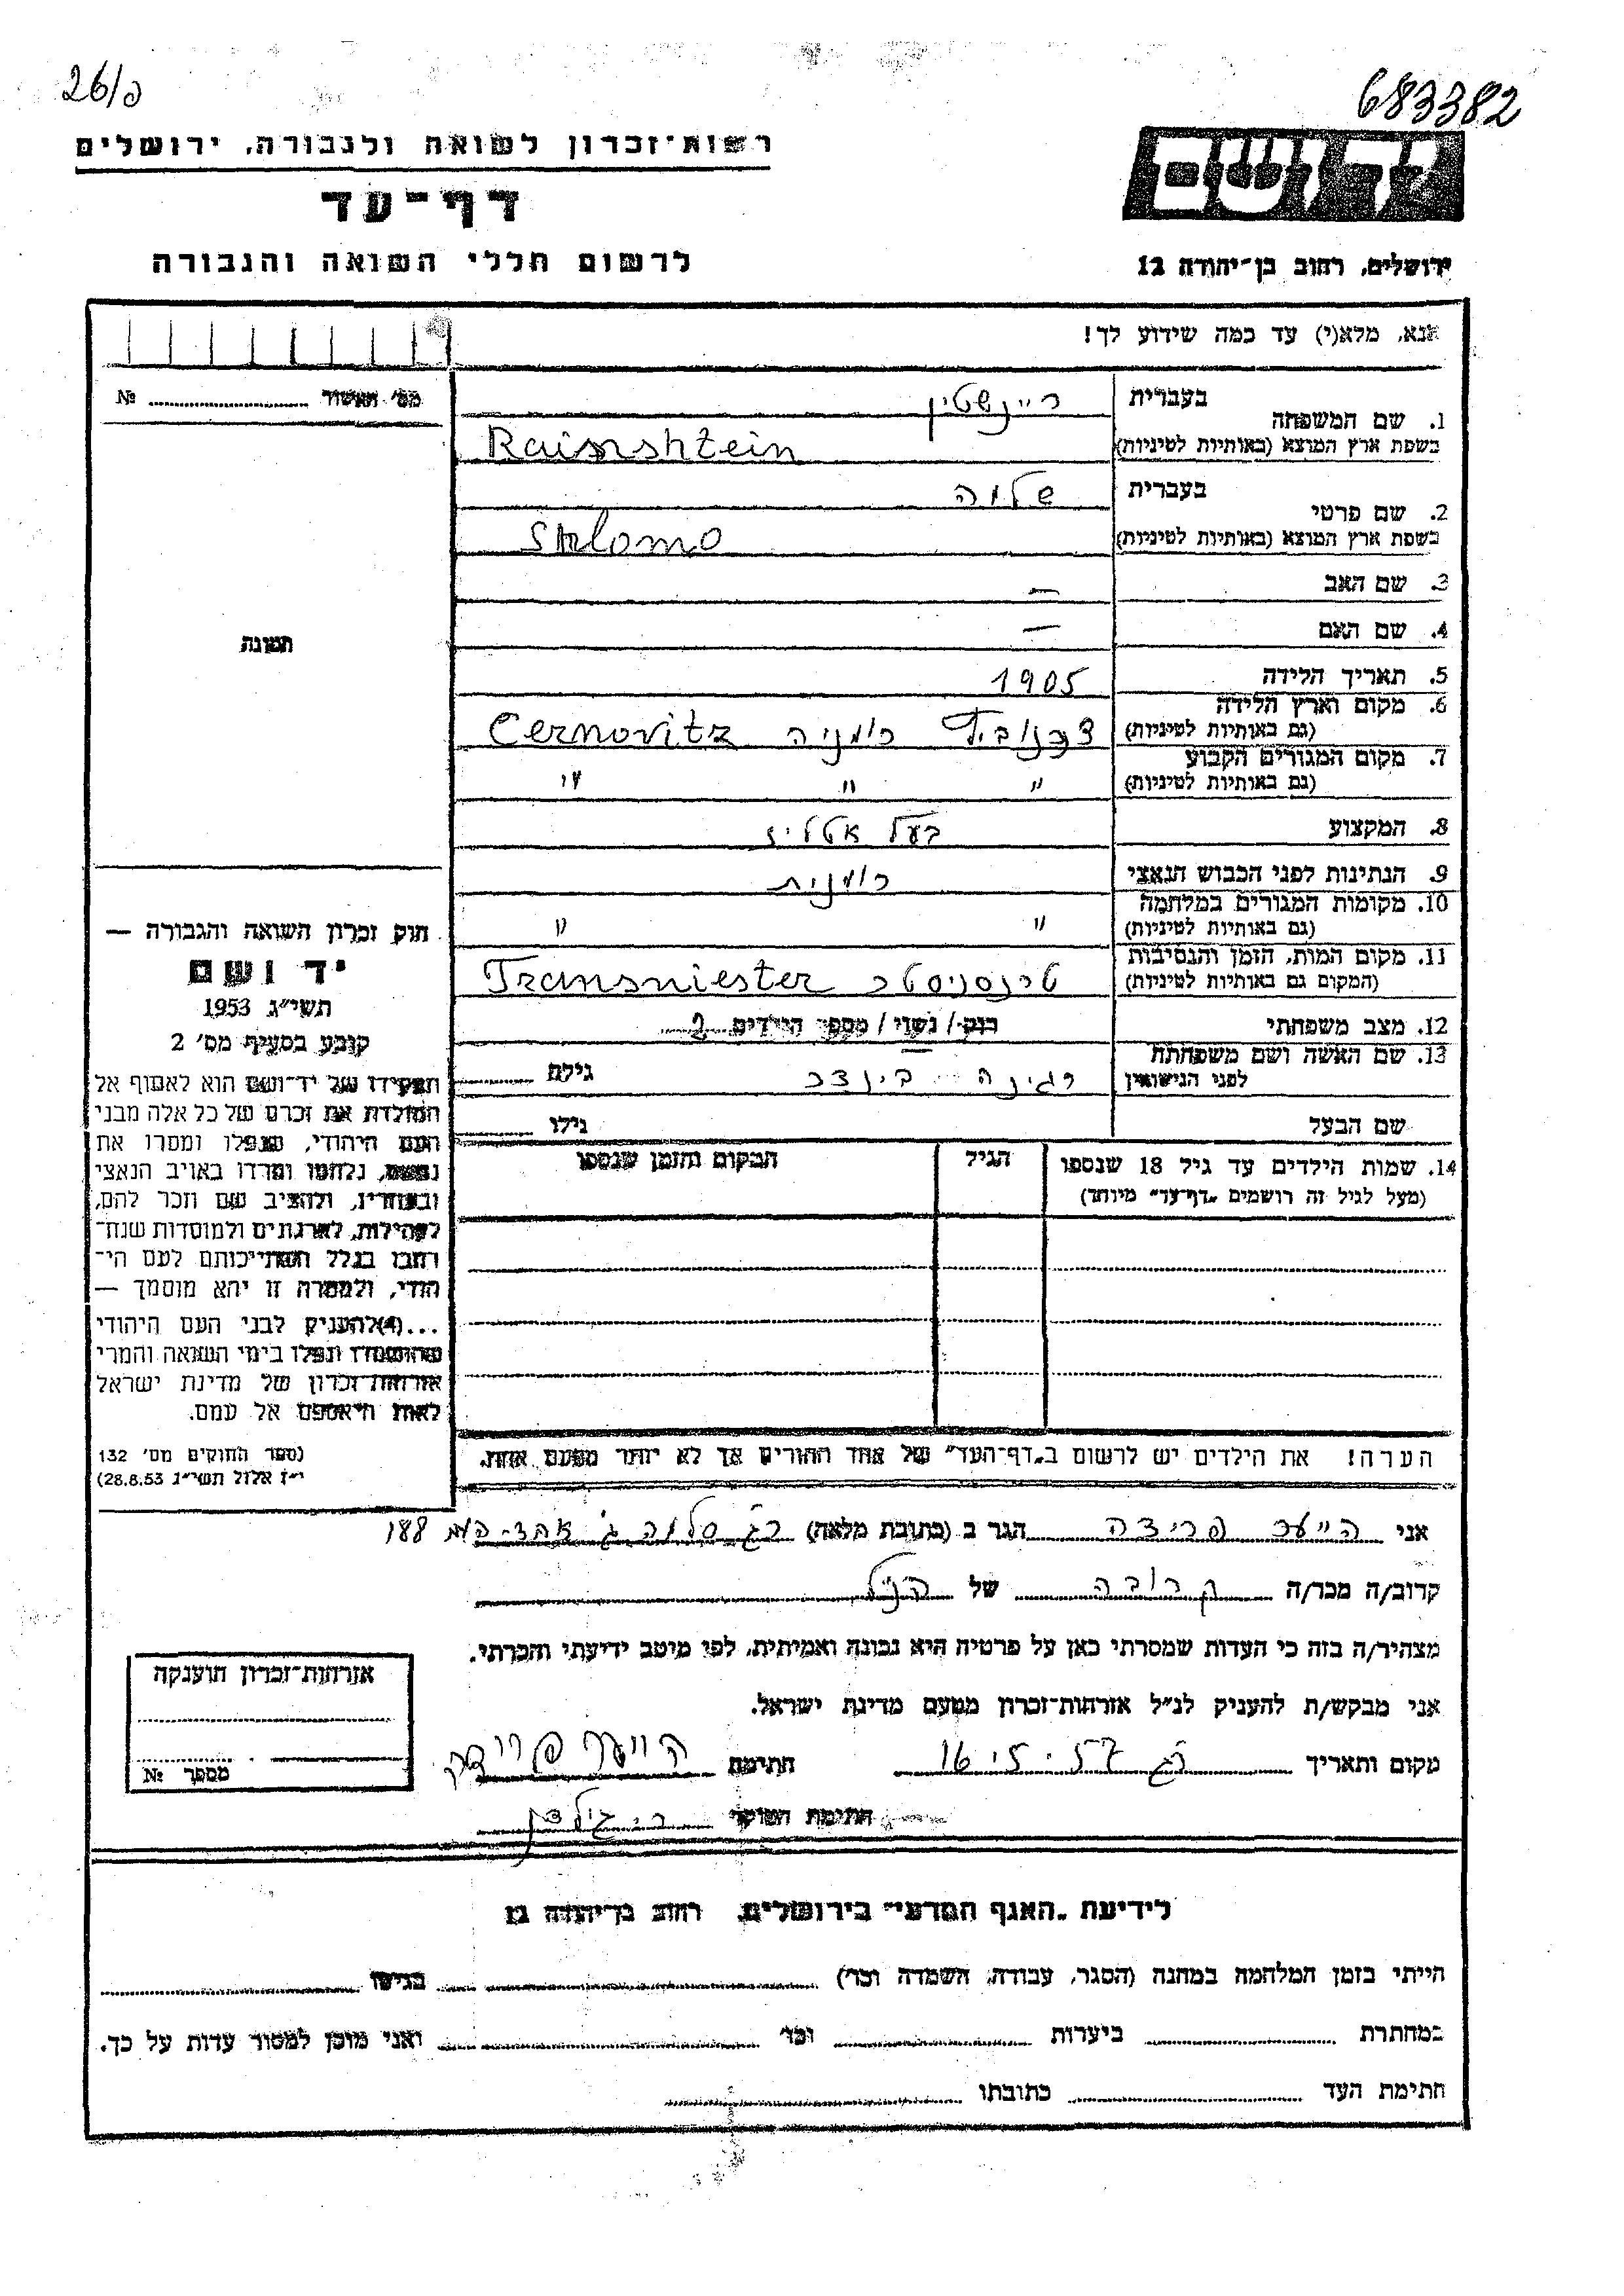 26/פ
683382
רשות־זכרון לשואה ולגבורה, ירושלים
דף־עד
לרשום חללי השואה והגבורה
יד ושם
ירושלים, רחוב בן־יהודה 12
אנא, מלא(י) עד כמה שידוע לך!
מס׳ האשור № 
1. שם המשפחה
בעברית
ריינשטיין
בשפת ארץ המוצא (באותיות לטיניות)
Rainshtein
2. שם פרטי
בעברית
שלמה
בשפת ארץ המוצא (באותיות לטיניות)
Shlomo
3. שם האב —
4. שם האם —
תמונה
5. תאריך הלידה 1905
6. מקום וארץ הלידה
(גם באותיות לטיניות)
צרנוביץ רומניה Cernovitz
7. מקום המגורים הקבוע
(גם באותיות לטיניות)
" " "
8. המקצוע בעל אטליז
9. הנתינות לפני הכבוש הנאצי רומנית
10. מקומות המגורים במלחמה
(גם באותיות לטיניות)
" "
11. מקום המות, הזמן והנסיבות
(המקום גם באותיות לטיניות)
טרנסניסטר Transniester
12. מצב משפחתי רווק / נשוי / מספר הילדים 2
13. שם האשה ושם משפחתה
לפני הנישואין
רגינה גילה
שם הבעל גילו
14. שמות הילדים עד גיל 18 שנספו
(מעל לגיל זה רושמים „דף־עד" מיוחד)
הגיל
המקום והזמן שנספו
הערה! את הילדים יש לרשום ב„דף־העד" של אחד ההורים אך לא יותר מפעם אחת.
חוק זכרון השואה והגבורה —
יד ושם
תשי״ג 1953
קובע בסעיף מס׳ 2
תפקידו של יד־ושם הוא לאסוף אל
המולדת את זכרם של כל אלה מבני
העם היהודי, שנפלו ומסרו את
נפשם, נלחמו ומרדו באויב הנאצי
ובעוזריו, ולהציב שם וזכר להם,
לקהילות, לארגונים ולמוסדות שנח־
רבו בגלל השתייכותם לעם הי־
הודי, ולמטרה זו יהא מוסמך —
...(4) להעניק לבני העם היהודי
שהושמדו ונפלו בימי השואה והמרי
אזרחות־זכרון של מדינת ישראל
לאות היאספם אל עמם.
(ספר החוקים מס׳ 132
י״ז אלול תשי״ג 28.8.53)
אני פרידה הגר ב (כתובת מלאה) ר״ג אחד־העם 188
קרוב/ה מכר/ה קרובה של הנ״ל
מצהיר/ה בזה כי העדות שמסרתי כאן על פרטיה היא נכונה ואמיתית, לפי מיטב ידיעתי והכרתי.
אני מבקש/ת להעניק לנ״ל אזרחות־זכרון מטעם מדינת ישראל.
מקום ותאריך ר״ג 16.5.57 חתימה
חתימת הפוקד
אזרחות־זכרון הוענקה
מספר №
לידיעת „האגף המדעי" בירושלים, רחוב בן־יהודה 12
הייתי בזמן המלחמה במחנה (הסגר, עבודה, השמדה וכד׳) בגיטו
במחתרת ביערות וכו׳ ואני מוכן למסור עדות על כך.
חתימת העד כתובתו